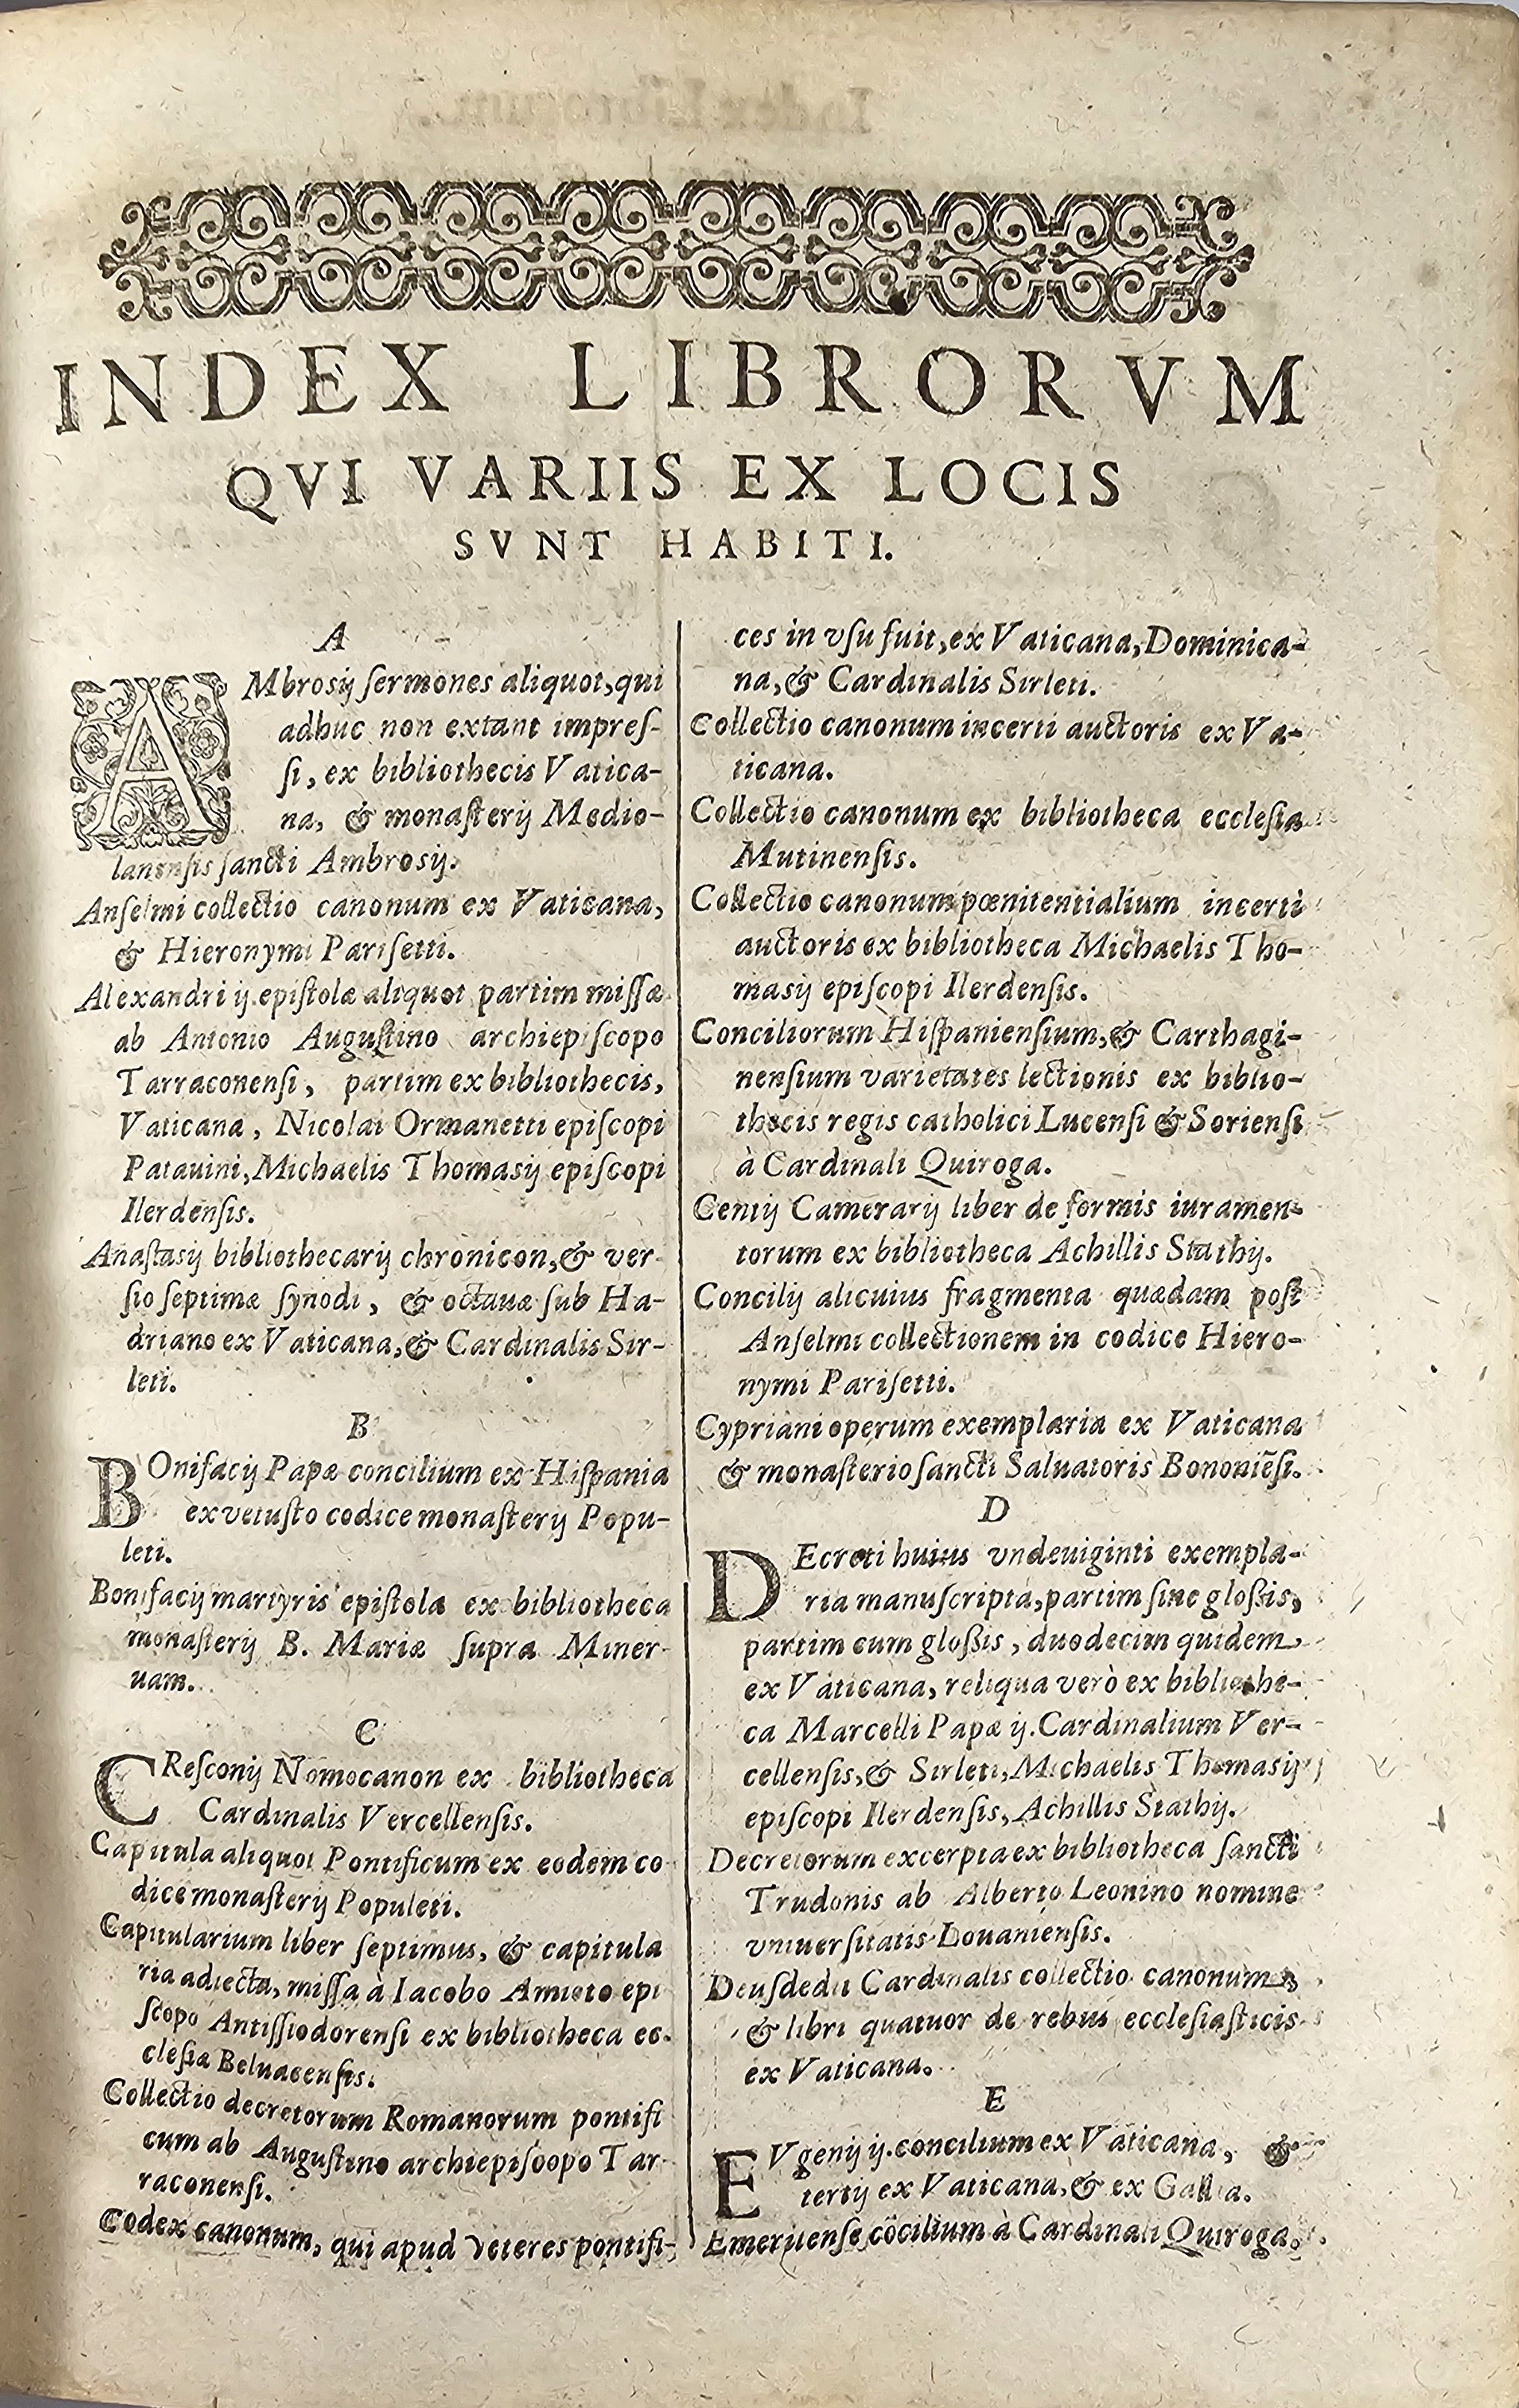 INDEX LIBRORVM
QVI VARIIS EX LOCIS
SVNT HABITI.
A
AMbrosij sermones aliquot, qui
adhuc non extant impres-
si, ex bibliothecis Vatica-
na, & monasterij Medio-
lanensis sancti Ambrosij.
Anselmi collectio canonum ex Vaticana,
& Hieronymi Parisetti.
Alexandri ij. epistolæ aliquot partim missæ
ab Antonio Augustino archiepiscopo
Tarraconensi, partim ex bibliothecis,
Vaticana, Nicolai Ormanetti episcopi
Patauini, Michaelis Thomasij episcopi
Ilerdensis.
Anastasij bibliothecarij chronicon, & ver-
sio septimæ synodi, & octauæ sub Ha-
driano ex Vaticana, & Cardinalis Sir-
leti.
B
BOnifacij Papæ concilium ex Hispania
ex vetusto codice monasterij Popu-
leti.
Bonifacij martyris epistola ex bibliotheca
monasterij B. Mariæ supra Miner-
uam.
C
CResconij Nomocanon ex bibliotheca
Cardinalis Vercellensis.
Capitula aliquot Pontificum ex eodem co
dice monasterij Populeti.
Capitularium liber septimus, & capitula
ria adiecta, missa à Iacobo Amioto epi
scopo Antissiodorensi ex bibliotheca ec-
clesiæ Beluacensis.
Collectio decretorum Romanorum pontifi
cum ab Augustino archiepiscopo Tar-
raconensi.
Codex canonum, qui apud veteres pontifi-
ces in vsu fuit, ex Vaticana, Dominica-
na, & Cardinalis Sirleti.
Collectio canonum incerti auctoris ex Va-
ticana.
Collectio canonum ex bibliotheca ecclesiæ
Mutinensis.
Collectio canonum pœnitentialium incerti
auctoris ex bibliotheca Michaelis Tho-
masij episcopi Ilerdensis.
Conciliorum Hispaniensium, & Carthagi-
nensium varietates lectionis ex biblio-
thecis regis catholici Lucensi & Soriensi
à Cardinali Quiroga.
Centij Camerarij liber de formis iuramen-
torum ex bibliotheca Achillis Stathij.
Concilij alicuius fragmenta quædam post
Anselmi collectionem in codice Hiero-
nymi Parisetti.
Cypriani operum exemplaria ex Vaticana
& monasterio sancti Saluatoris Bononiẽsi.
D
DEcreti huius vndeuiginti exempla-
ria manuscripta, partim sine glossis,
partim cum glossis, duodecim quidem
ex Vaticana, reliqua verò ex bibliothe-
ca Marcelli Papæ ij. Cardinalium Ver-
cellensis, & Sirleti, Michaelis Thomasij
episcopi Ilerdensis, Achillis Stathij.
Decretorum excerpta ex bibliotheca sancti
Trudonis ab Alberto Leonino nomine
vniuersitatis Louaniensis.
Deusdedit Cardinalis collectio canonum,
& libri quatuor de rebus ecclesiasticis
ex Vaticana.
E
EVgenij ij. concilium ex Vaticana, &
tertij ex Vaticana, & ex Gallia.
Emeritense cõcilium à Cardinali Quiroga.